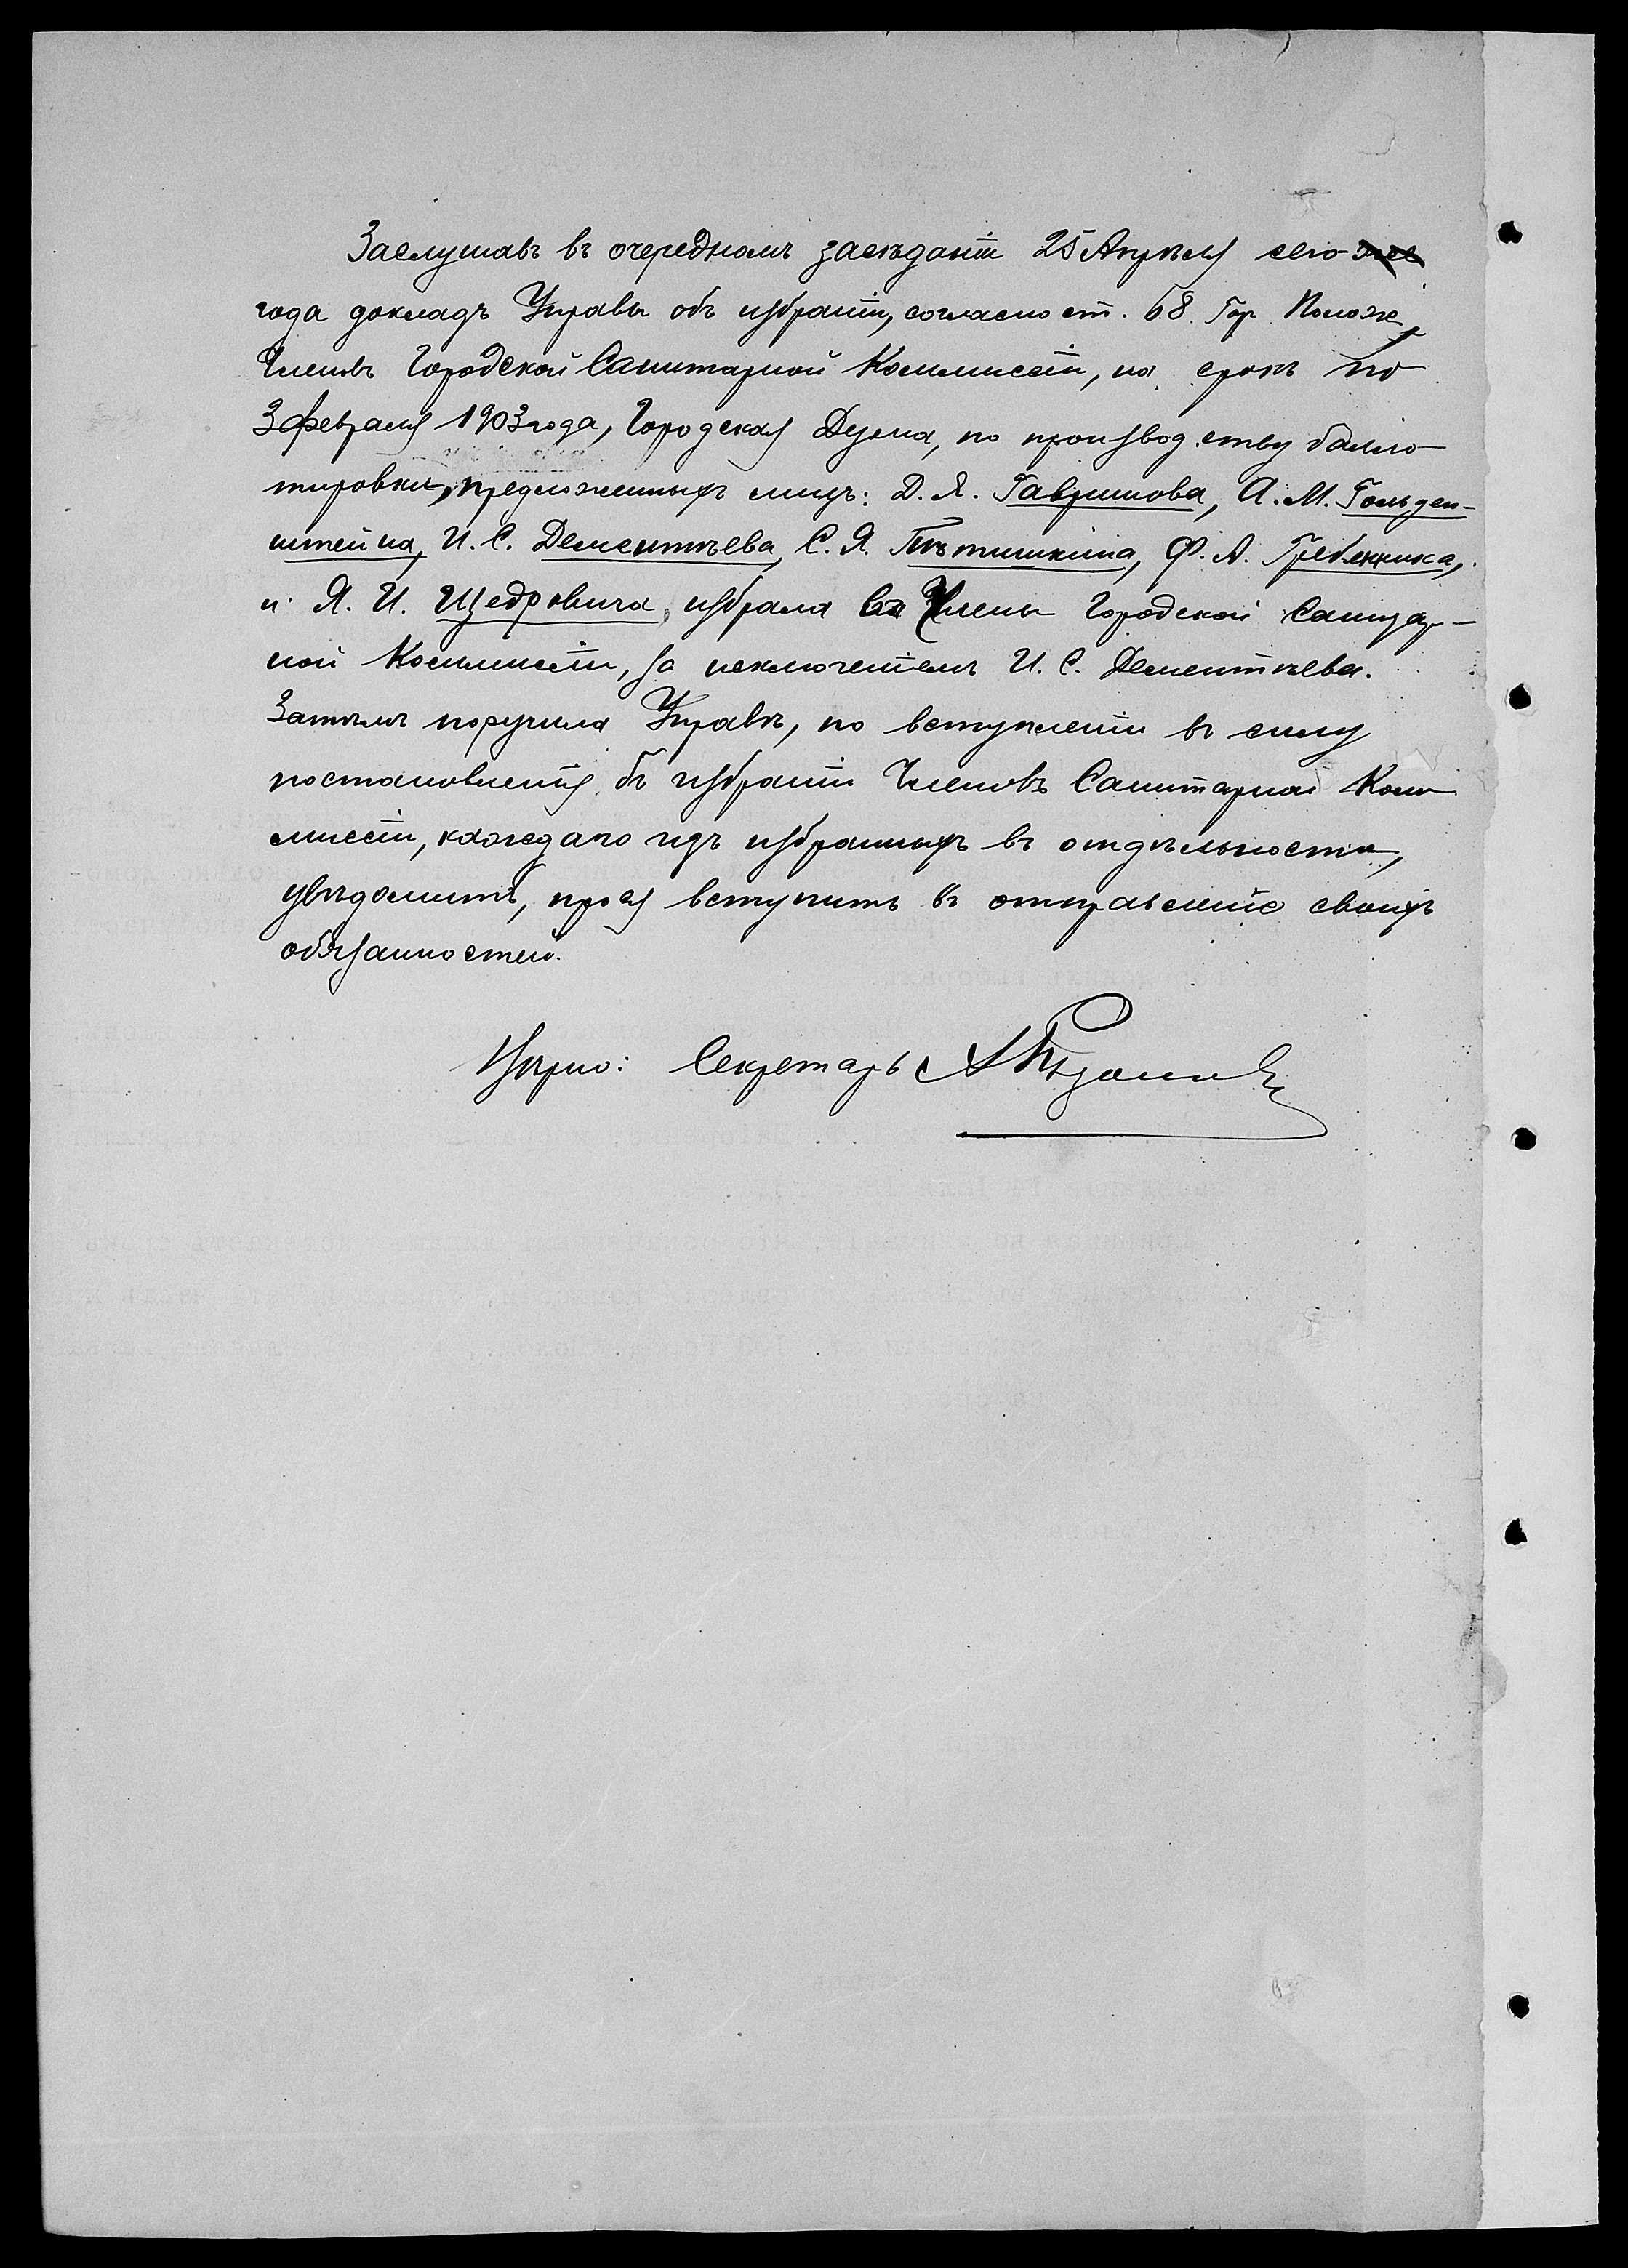 Заслушавъ въ очередномъ засѣданіи 25 Апрѣля сего же
года докладъ Управы объ избраніи, согласно ст. 68. Гор. Полож.,
Членовъ Городской Санитарной Коммиссіи, на срокъ по
3 февраля 1903 года, Городская Дума, по производству балло-
тировки, предложенныхъ лицъ: Д. Я. Гавришова, А. М. Гольден-
штейна, И. С. Дементьева, С. Я. Пѣтишкина, Ф. А. Гребенника,
и Я. И. Щедровича, избрала въ Члены Городской Санитар-
ной Коммиссіи, за исключеніемъ И. С. Дементьева.
Затѣмъ поручила Управѣ, по вступленіи въ силу
постановленія объ избраніи Членовъ Санитарной Ком-
миссіи, каждаго изъ избранныхъ въ отдѣльности,
увѣдомить, прося вступить въ отправленіе своихъ
обязанностей.
Вѣрно: Секретарь